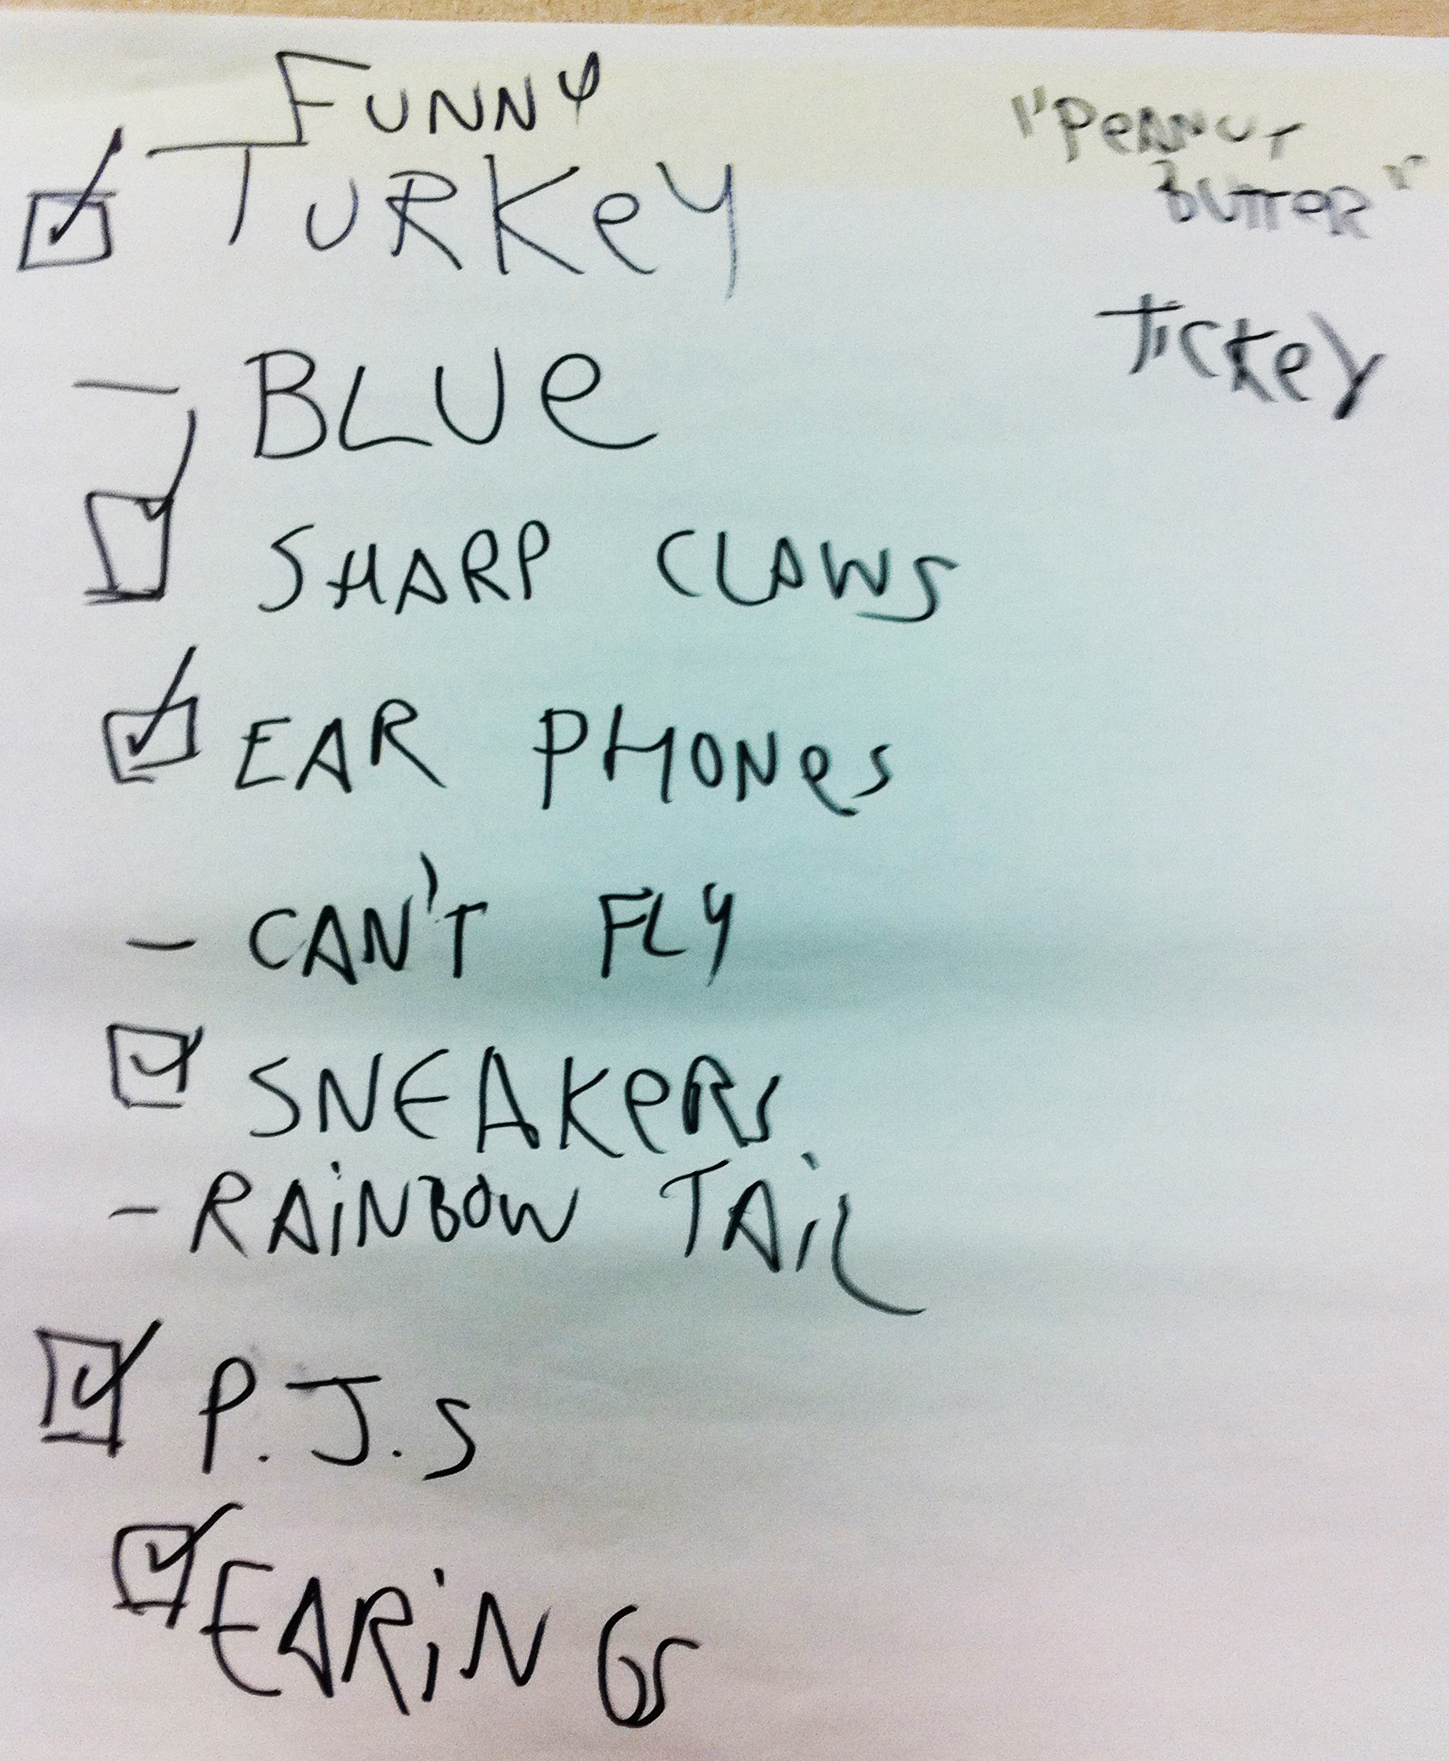 FUNNY
TURKeY
– BLUe
SHARP CLAWS
EAR PHONes
– CAN'T FLY
SNEAKeRS
– RAiNBOW TAiL
P.J.S
EARiNGS
"PeANUT
BUTTeR"
TickeY